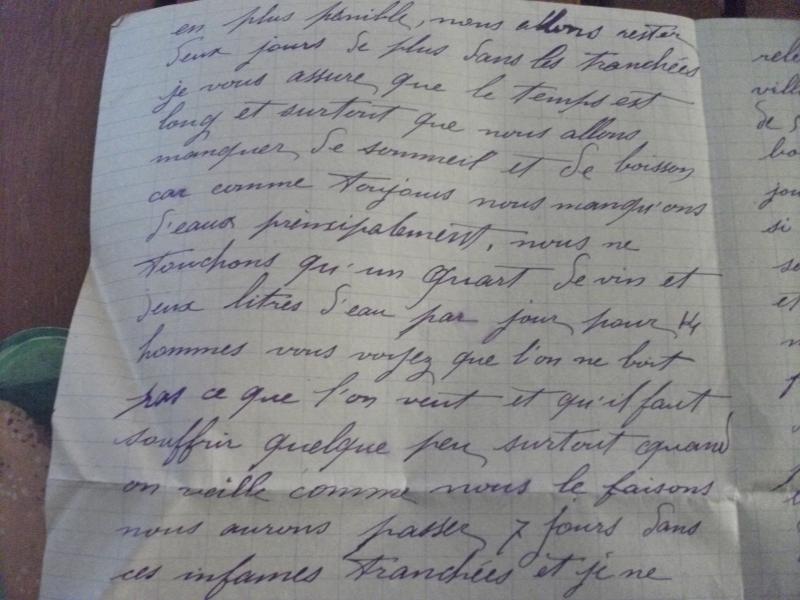 en plus pénible, nous allons rester
deux jours de plus dans les tranchées
je vous assure que le temps est
long et surtout que nous allons
manquer de sommeil et de boisson
car comme toujours nous manqu'ons
d'eaux principalement, nous ne
touchons qu'un quart de vin et
deux litres d'eau par jour pour 14
hommes vous voyez que l'on ne boit
pas ce que l'on veut et qu'il faut
souffrir quelque peu surtout quand
on veille comme nous le faisons
nous aurons passer 7 jours dans
ces infames tranchées et je ne
de
si
et